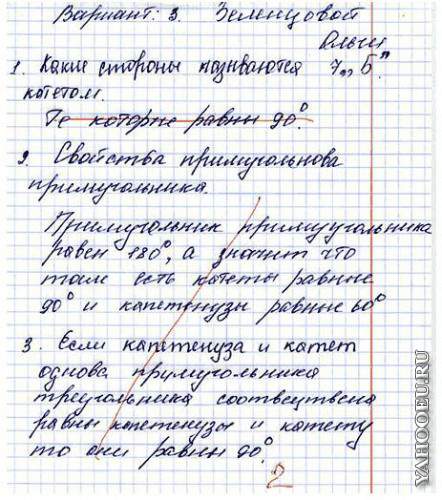 Вариант: 3. Зеленцовой
Ольги
1. Какие стороны называются 7 „Б"
катетом.
Те которые равны 90°.
2. Свойства примугольнова
примугольника.
Примугольник примуугольника
равен 180°, а значит что
там есть катеты равные
90° и капетенузы равные 60°
3. Если капетенуза и катет
однова примугольника
треугольника соотвецтвена
равны капетенузы и катету
то они равны 90°.
2
YAHOOEU.RU